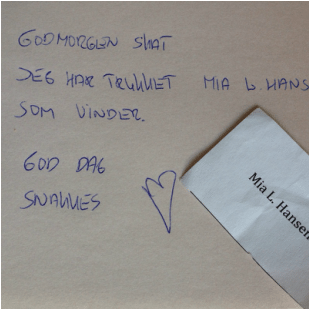 GODMORGEN SKAT
JEG HAR TRUKKET MIA L. HANS
SOM VINDER.
GOD DAG
SNAKKES
Mia L. Hansen